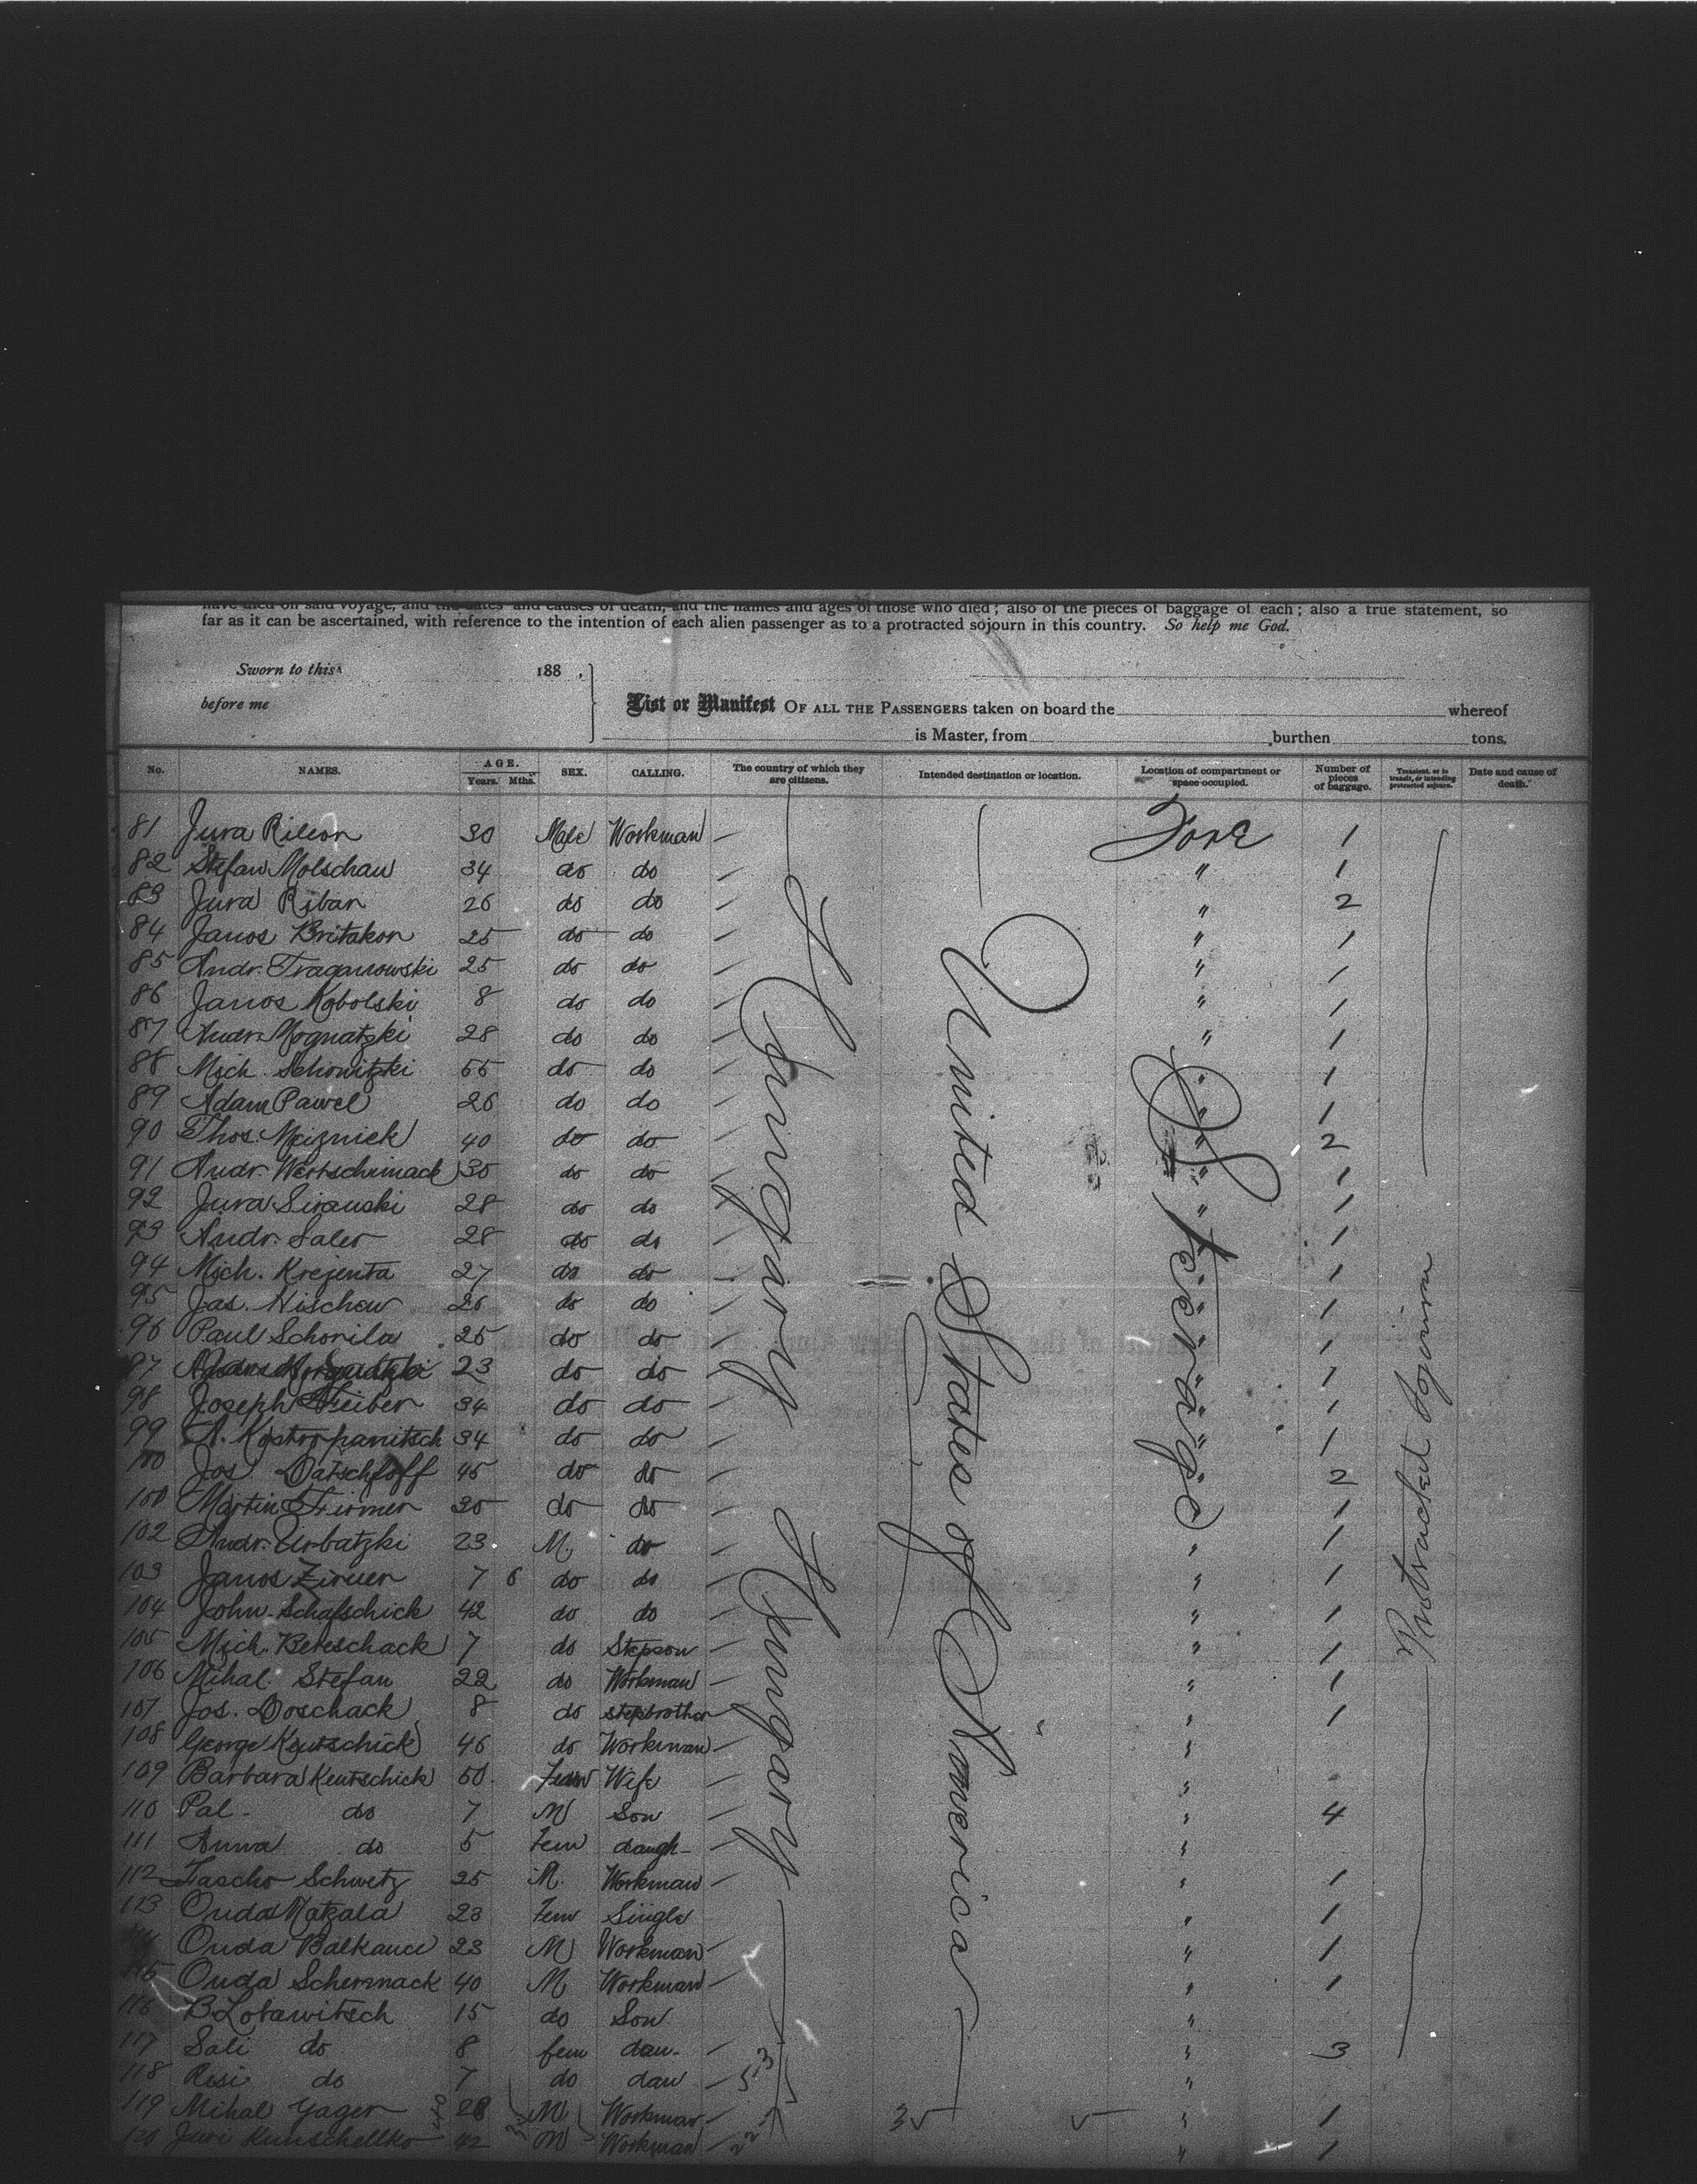 have died on said voyage, and the dates and causes of death, and the names and ages of those who died; also of the pieces of baggage of each; also a true statement, so
far as it can be ascertained, with reference to the intention of each alien passenger as to a protracted sojourn in this country. So help me God.
Sworn to this 188 .
before me
List or Manifest OF ALL THE PASSENGERS taken on board the whereof
is Master, from burthen tons.
No. NAMES. AGE. Years. Mths. SEX. CALLING. The country of which they are citizens. Intended destination or location. Location of compartment or space occupied. Number of pieces of baggage. Transient, or in transit, or intending protracted sojourn. Date and cause of death.
Hungary Hungary
United States of America
Steerage
Protracted Sojourn
81 Jura 30 Male Workman Fore 1
82 Stefan Molschan 34 do do " 1
83 Jura Riban 26 do do " 2
84 Janos Britakon 25 do do " 1
85 Andr. Traganowski 25 do do " 1
86 Janos Kobolski 8 do do " 1
87 Andr. Mognatzki 28 do do " 1
88 Mich. Schonitzki do do " 1
89 Adam Pawel 26 do do " 1
90 Thos. Meiznick 40 do do " 2
91 Andr. do do " 1
92 Jura Sirauski 28 do do " 1
93 Andr. Saler 28 do do " 1
94 Mich. Krejenta 27 do do " 1
95 Jas. Hischow 26 do do " 1
96 Paul Schorila 25 do do " 1
97 23 do do " 1
98 Joseph 34 do do " 1
99 A. Kostropanitsch 34 do do " 1
100 Jos. Datschloff 45 do do " 2
101 Martin do do 1
102 Andr. Urbatzki 23 M do " 1
103 Janos Zirner 7 6 do do " 1
104 John Schafschick 42 do do " 1
105 Mich. Bereschack 7 do Stepson " 1
106 Mihal Stefan 22 do Workman " 1
107 Jos. Doschack 8 do stepbrother " 1
108 George Kentschick 46 do Workman "
109 Barbara Kentschick 50 Fem Wife "
110 Pal do 7 M Son " 4
111 Anna do 5 Fem daugh "
112 Schwetz 25 M. Workman " 1
113 Onda Matzala 23 Fem Single " 1
Onda Balkanci 23 M Workman " 1
115 Onda Schermack 40 M Workman " 1
116 B. Lobawitsch 15 do Son "
117 Sali do 8 fem dau. " 3
118 Resi do 7 do dau "
119 Mihal Yager 28 M Workman 35 " 1
120 Juri Kunschellko 42 M Workman " 1